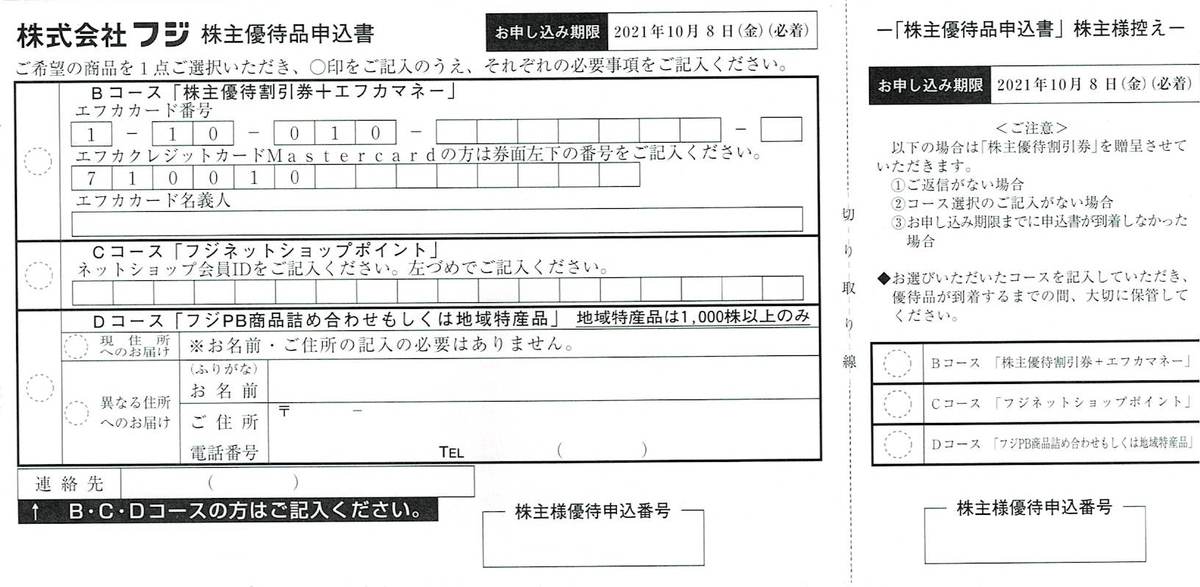 株式会社フジ 株主優待品申込書
お申し込み期限 2021年10月8日(金)(必着)
ご希望の商品を1点ご選択いただき、○印をご記入のうえ、それぞれの必要事項をご記入ください。
Bコース「株主優待割引券+エフカマネー」
エフカカード番号
1 - 10 - 010 - -
エフカクレジットカードMastercardの方は券面左下の番号をご記入ください。
710010
エフカカード名義人
Cコース「フジネットショップポイント」
ネットショップ会員IDをご記入ください。左づめでご記入ください。
Dコース「フジPB商品詰め合わせもしくは地域特産品」 地域特産品は1,000株以上のみ
現住所
へのお届け
※お名前・ご住所の記入の必要はありません。
異なる住所
へのお届け
(ふりがな)
お名前
ご住所
〒 -
電話番号
TEL ( )
連絡先 ( )
↑ B・C・Dコースの方はご記入ください。
株主様優待申込番号
切り取り線
―「株主優待品申込書」株主様控え―
お申し込み期限 2021年10月8日(金)(必着)
<ご注意>
以下の場合は「株主優待割引券」を贈呈させて
いただきます。
①ご返信がない場合
②コース選択のご記入がない場合
③お申し込み期限までに申込書が到着しなかった
場合
◆お選びいただいたコースを記入していただき、
優待品が到着するまでの間、大切に保管して
ください。
Bコース 「株主優待割引券+エフカマネー」
Cコース 「フジネットショップポイント」
Dコース 「フジPB商品詰め合わせもしくは地域特産品」
株主様優待申込番号